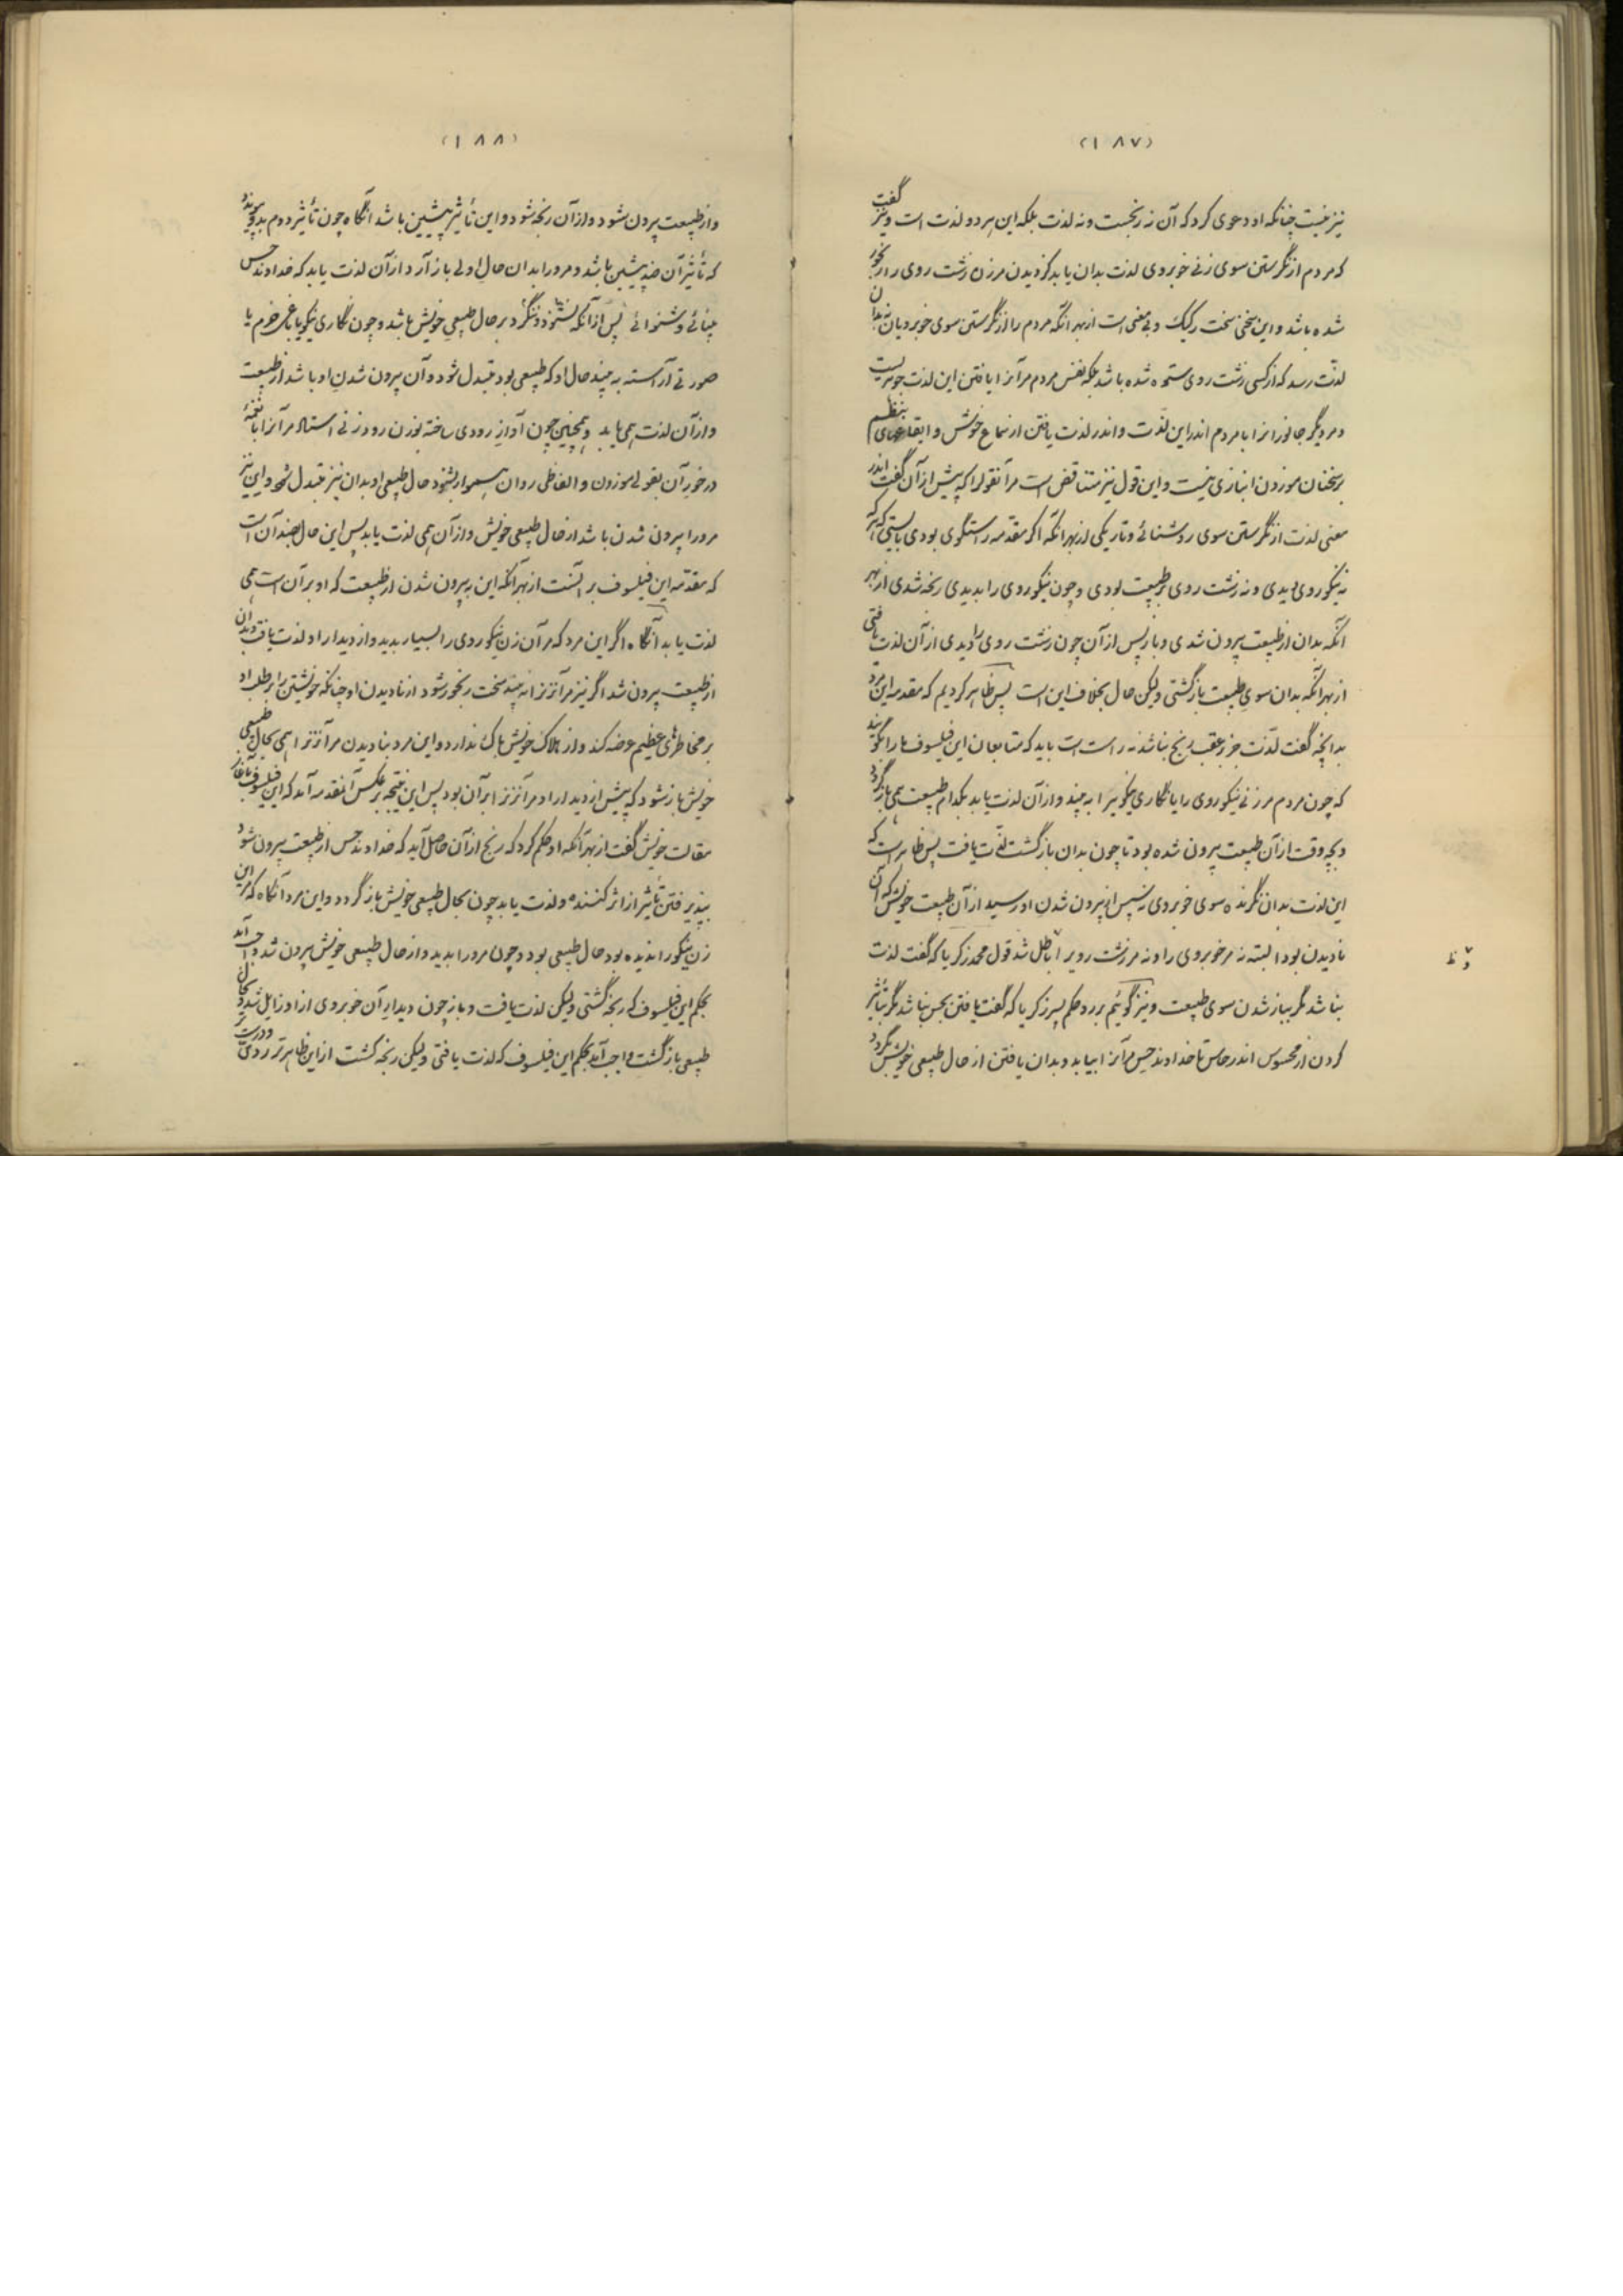 (۱۸۷)
نیز نیست چنانکه او دعوی کرد که آن نه رنجست و نه لذت بلکه این هر دو لذت است و نیز گفت
که مردم از نگرستن سوی زنی خوبروی لذت بدان یابد کز دیدن مر زن زشت روی را رنجور
شده باشد و این سخنی سخت رکیک و بی معنی است از بهر آنکه مردم را از نگرستن سوی خوبرویان نه بدان
لذت رسد که از کسی زشت روی ستوه شده باشد بلکه نفس مردم مر آنرا یافتن این لذت جوهریست
و مر دیگر جانورانرا با مردم اندر این لذت و اندر لذت یافتن از سماع خوش و ایقاعهای بنظم
بر سخنان موزون انبازی نیست و این قول نیز متناقض است مر آنقول را که پیش از آن گفت اندر
معنی لذت از نگرستن سوی روشنائی و تاریکی از بهر آنکه اگر مقدمه راستگوی بودی بایستی که هر که
نه نیکوروی دیدی و نه زشت روی بر طبیعت بودی و چون نیکوروی را بدیدی رنجه شدی از بهر
آنکه بدان از طبیعت بیرون شدی و باز پس از آن چون زشت روی را دیدی از آن لذت یافتی
از بهر آنکه بدان سوی طبیعت باز گشتی و لیکن حال بخلاف این است پس ظاهر کردیم که مقدمه این مرد
بدانچه گفت لذت جز بر عقب رنج نباشد نه راست است باید که متابعان این فیلسوف ما را بگویند
که چون مردم مر زنی نیکوروی را یا نگاری نیکو را به بیند و از آن لذت یابد بکدام طبیعت همی باز گردد
و بچه وقت از آن طبیعت بیرون شده بود تا چون بدان باز گشت لذت یافت پس ظاهر است که
این لذت بدان نگرنده سوی خوبروی نه سپس از بیرون شدن او رسید از آن طبیعت خویش که آن
نادیدن بود البته نه مر خوبروی را و نه مر زشت روی را باطل شد قول محمد زکریا که گفت لذت
نباشد مگر بباز شدن سوی طبیعت و نیز گوئیم بر رد حکم پسر زکریا که گفت یافتن بحس نباشد مگر بتأثیر
کردن از محسوس اندر حاس تا خداوند حس مر آنرا بیابد و بدان یافتن از حال طبیعی خویش بگردد
(۱۸۸)
و از طبیعت بیرون شود و از آن رنجه شود و این تأثیر پیشین باشد آنگاه چون تأثیر دوم بدو پیوندد
که تأثیر آن ضد پیشین باشد و مر او را بدان حال اولی باز آرد از آن لذت یابد که خداوند حس
بینائی و شنوائی پس از آنکه نشنود و ننگرد بر حال طبیعی خویش باشد و چون نگاری نیکو یا باغی خرم یا
صورتی آراسته به بیند حال او که طبیعی بود متبدل شود و آن بیرون شدن او باشد از طبیعت
و از آن لذت همی یابد و همچنین چون آواز رودی ساخته بوزن رود زنی استاد مر آنرا با نغمهٔ
در خور آن بقولی موزون و الفاظی روان هموار بشنود حال طبیعی او بدان نیز متبدل شود و این نیز
مر او را بیرون شدن باشد از حال طبیعی خویش و از آن همی لذت یابد پس این حال بضد آن است
که مقدمه این فیلسوف بر آنست از بهر آنکه این به بیرون شدن از طبیعت که او بر آن است همی
لذت یابد آنگاه اگر این مرد که مر آن زن نیکوروی را بسیار بدید و از دیدار او لذت یافت و بدان
از طبیعت بیرون شد اگر نیز مر آن زنرا نه بیند سخت رنجور شود از نادیدن او چنانکه خویشتن را بر طلب او
بر مخاطرهای عظیم عرضه کند و از هلاک خویش باک ندارد و این مرد بنادیدن مر آن زنرا همی بحال طبیعی
خویش باز شود که پیش از دیدار او مر آن زنرا بر آن بود پس این نتیجه بر عکس آنمقدمه آمد که این فیلسوف بآغاز
مقالت خویش گفت از بهر آنکه او حکم کرد که رنج از آن حاصل آید که خداوند حس از طبیعت بیرون شود
بپذیرفتن تأثیر از اثر کننده و لذت یابد چون بحال طبیعی خویش باز گردد و این مرد آنگاه که مر این
زن نیکو را ندیده بود حال طبیعی بود و چون مر او را بدید و از حال طبیعی خویش بیرون شد واجب آمد
بحکم این فیلسوف که رنجه گشتی و لیکن لذت یافت و باز چون دیدار آن خوبروی از او زایل شد و بحال
طبیعی باز گشت واجب آمد بحکم این فیلسوف که لذت یافتی و لیکن رنجه گشت از این ظاهرتر ردی